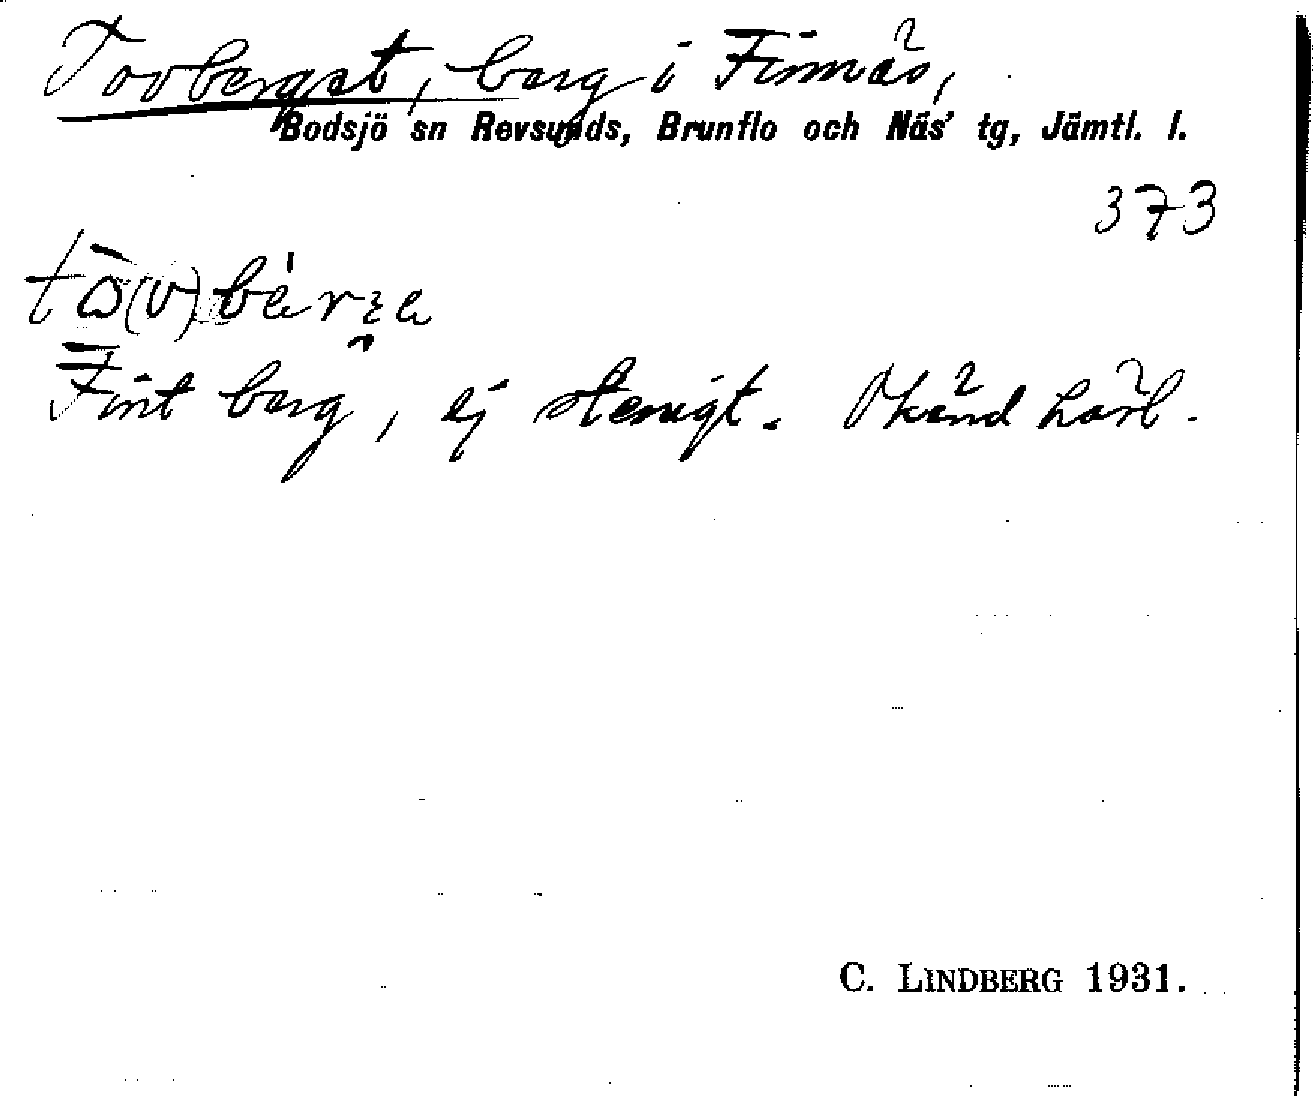 Tovberget, berg i Finnäs,
Bodsjö sn Revsunds, Brunflo och Näs' tg, Jämtl. l.
373
Fint berg, ej stenigt. Okänd härl.
C. LINDBERG 1931.